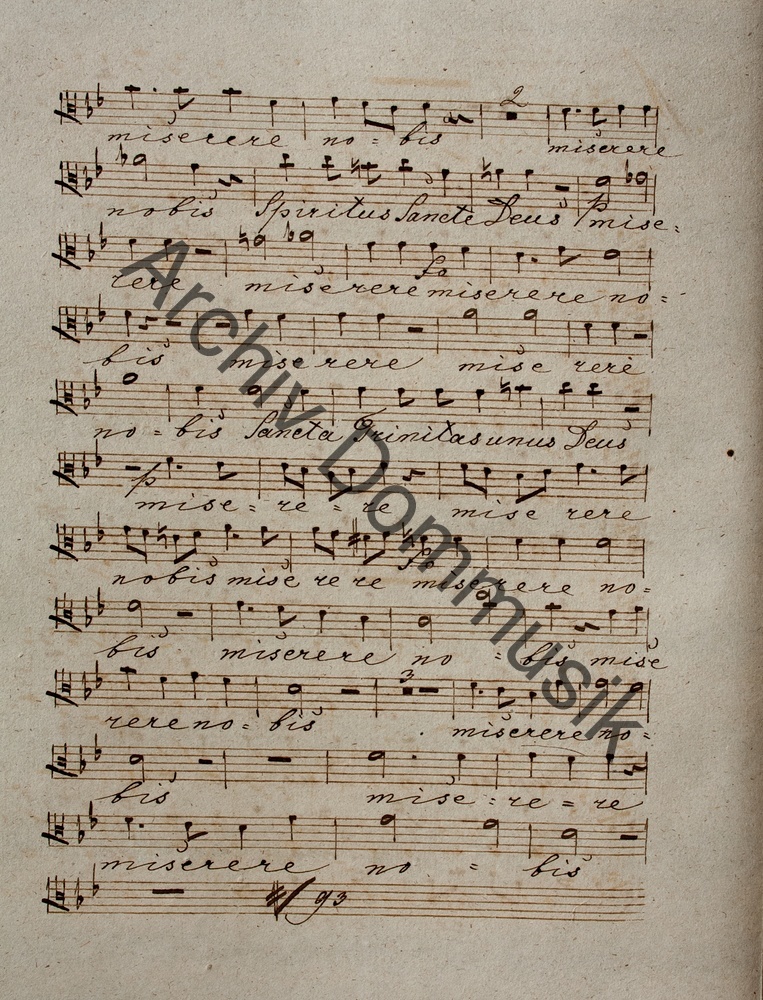 2
miserere no = bis miserere
nobis Spiritus Sancte Deus p mise =
rere miserere miserere no =
fo
bis miserere mise rere
no = bis Sancta Trinitas unus Deus
p
mise = re = re mise rere
nobis mise re re miserere no =
fo
bis miserere no = bis mise
3
rere no = bis miserere no =
bis mise = re = re
miserere no = bis
93
Archiv Dommusik